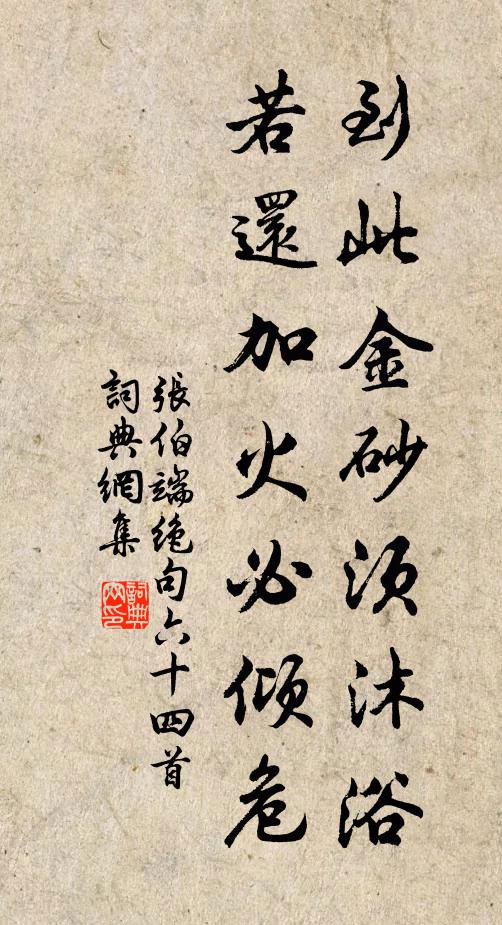 到此金砂須沐浴
若還加火必傾危
張伯端絶句六十四首
詞典網集
詞典网印